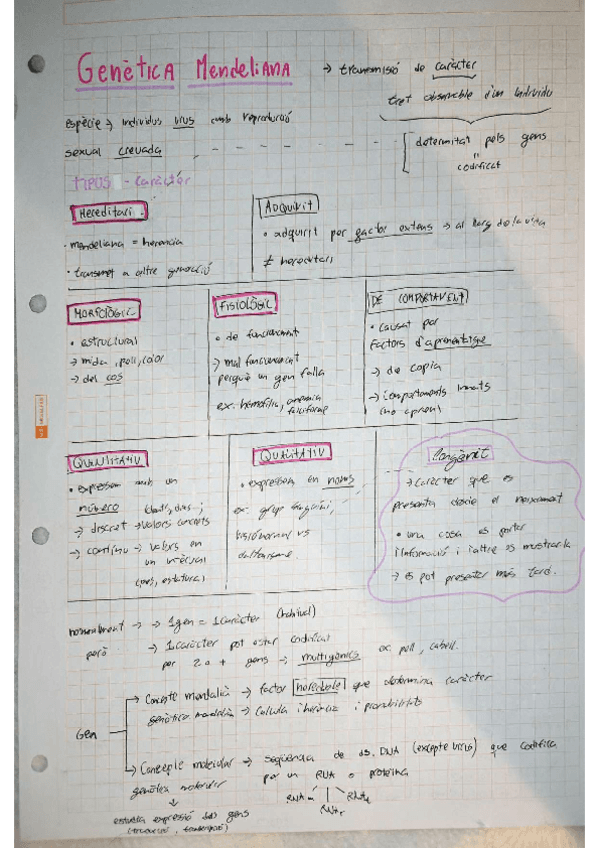 GENÈTICA MENDELIANA → transmissió de caràcter
tret observable d'un individu
espècie → individus vius amb reproducció
sexual creuada
determinat pels gens
codificat
TIPUS - caràcter
Hereditari
• mendeliana = herencia
• transmet a altre generació
ADQUIRIT
• adquirit per factor extens → al llarg de la vida
≠ hereditari
MORFOLÒGIC
• estructural
→ mida, pell, color
→ del cos
FISIOLÒGIC
• de funcionament
→ mal funcionament
perquè un gen falla
ex. hemofília, anemia
falciforme
DE COMPORTAMENT
• causat per
factors d'aprenentatge
→ de copia
→ comportaments innats
(no aprens)
QUANTITATIU
• expressem amb un
número
→ discret → valors concrets
→ continu → valors en
un interval
(pes, estatura)
QUALITATIU
• expressem en noms
ex. grup sanguini,
visió normal vs
daltonisme
Congènit
→ caràcter que es
presenta desde el naixement
• una cosa es portar
l'informació i l'altre es mostrar-la
→ es pot presentar més tard.
normalment → 1 gen = 1 caràcter
però → 1 caràcter pot estar codificat
per 2 o + gens → multigènics ex. pell, cabell.
Gen
→ Concepte mendelià → factor heredable que determina caràcter
genètica mendelià → Calcula herència i probabilitats
→ Concepte molecular → seqüència de ds. DNA (excepte virus) que codifica
genètica molecular per un RNA o proteina
RNAm RNAr RNAt
estudia expressió dels gens
(traducció, transcripció)